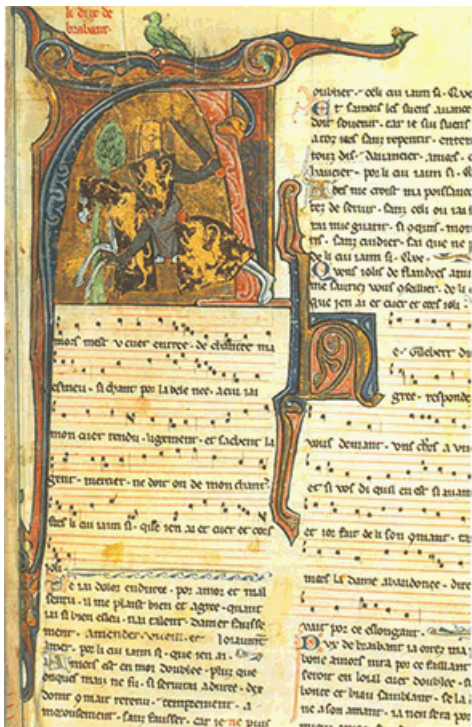 li dux de
brabant.
mors mest v cuer entree. de chanter ma
esmeu. si chant por la bele nee. a cui iai
mon cuer rendu. ligement. et sachent la
gent. mercier. ne doit on de mon chant.
fors li cui iaim si. que ien ai et cuer et cors
ioli.
iai dolor enduree. por amor et mal
sentu. il me plaist bien et agree. quant
iai si bien esleu. nai talent. damer fausse
ment. amender. vueill. et loiaument
amer. por li cui iaim si. que ien ai.
Amors est en moi doublee. plus que
onques mais ne fu. si servirai a duree. dex
doint q mait retenu. temprement. a
morousement. sanz fausser. car ie ne puis
oublier. celi cui iaim si. Que
Et samors les suens avance
doit souenir. car ie sui suens
a toz iors sanz repentir. enten
touz dis. davancier. amors. e
haucier. por li cui iaim si. Q
Ades me croist ma poissance
tez de servir. sanz celi ou iai
rai me guarir. si ocuns. mon
ns. sanz cuidier. sai que ne
de li cui iaim si. Que.
Quens iolis de flandres ami
me saurez vous gseillier. de li
que ien ai et cuer et cors ioli
e. Gilebert d
gree. responde
vous demant. vns chrs a vn
et si vos di quil en est si auan
et ior fait de li son gmant. ta
mes la dame abandonee. dire
vait por ce eslongant.
Dvx de braibant ia orrez ma
bone amors nira por ce faillant
seroit en loial cuer doublee. s
bonte et biau samblant. se la
ne a son amant. ia nen sera